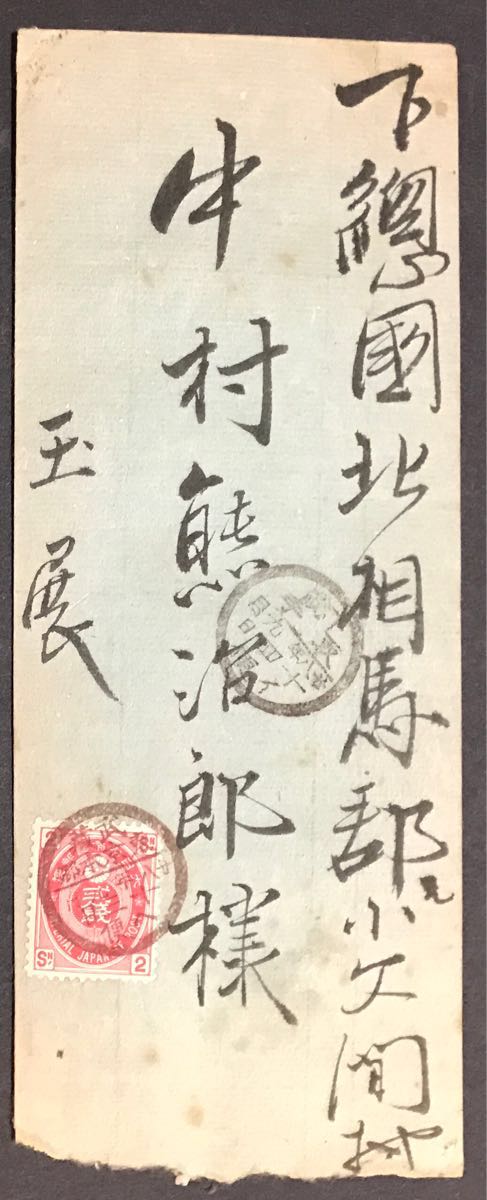 下總國北相馬郡元小文間村
中村熊治郎様
玉展
貳錢
IMPERIAL JAPANESE POST
Sn 2